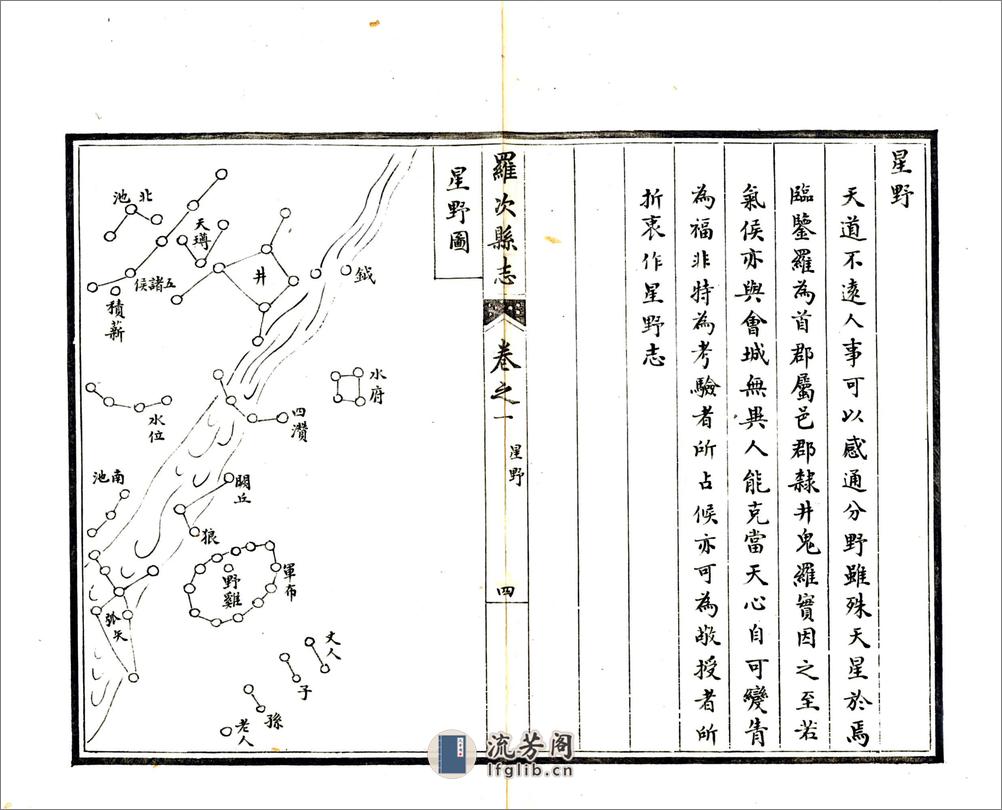 星野
天道不遠人事可以感通分野雖殊天星於焉
臨鑒羅為首郡屬邑郡隸井鬼羅實因之至若
氣侯亦與會城無異人能克當天心自可變眚
為福非特為考驗者所占候亦可為敬授者所
折衷作星野志
羅次縣志
卷之一
星野
四
星野圖
鉞
水府
四瀆
闕丘
狼
軍布
野雞
丈人
子
孫
老人
井
天罇
北池
五諸侯
積薪
水位
南池
弧矢
流芳阁
lfglib.cn